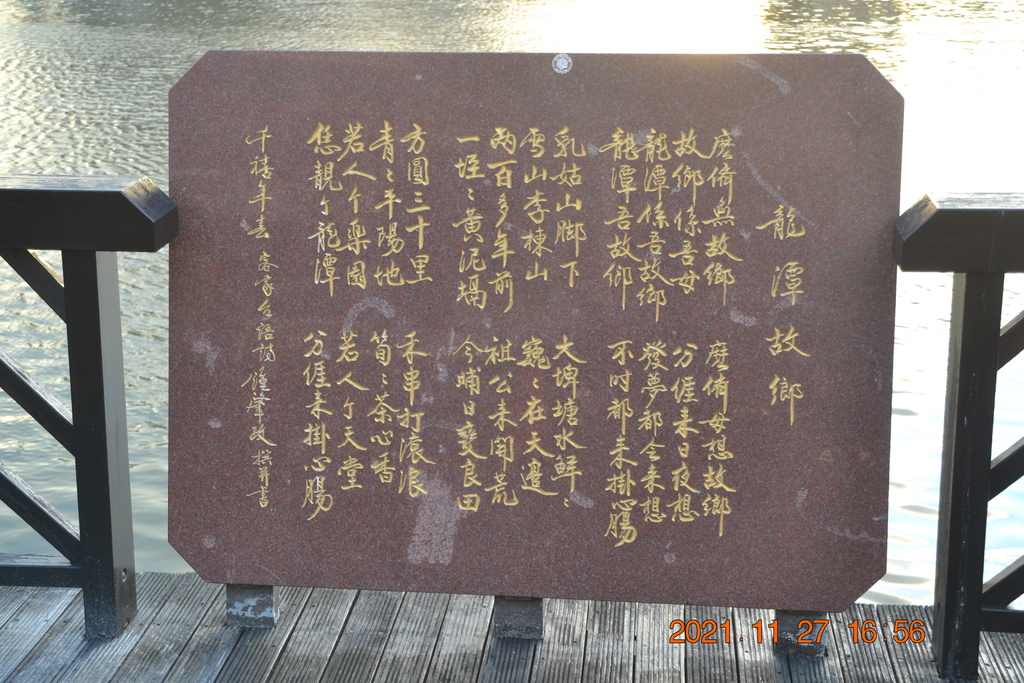 龍潭故鄉
麼儕無故鄉 麼儕毋想故鄉
故鄉係吾母 分𠊎来日夜想
龍潭係吾故鄉 發夢都会来想
龍潭吾故鄉 不时都来掛心腸
乳姑山脚下 大埤塘水鮮〻
雪山李棟山 巍〻在天邊
兩百多年前 祖公来開荒
一堆〻黃泥堨 今晡日變良田
方圓三十里 禾串打滾浪
青〻平陽地 筍〻茶心香
若人个樂園 若人个天堂
恁靚个龍潭 分𠊎来掛心腸
千禧年春 客家台語詩 鍾肇政撰并書
2021.11.27 16:56